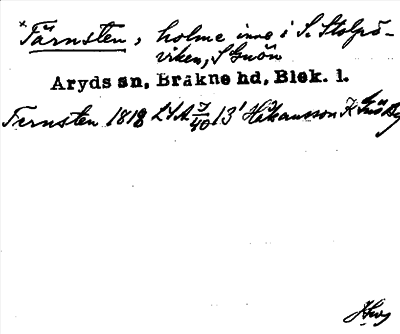 × Tärnsten, holme inne i S. Stolpö-
viken, S Gnön
Aryds sn, Bräkne hd, Blek. l.
Fernsten 1818 LSA 5/40 13' Håkansson K